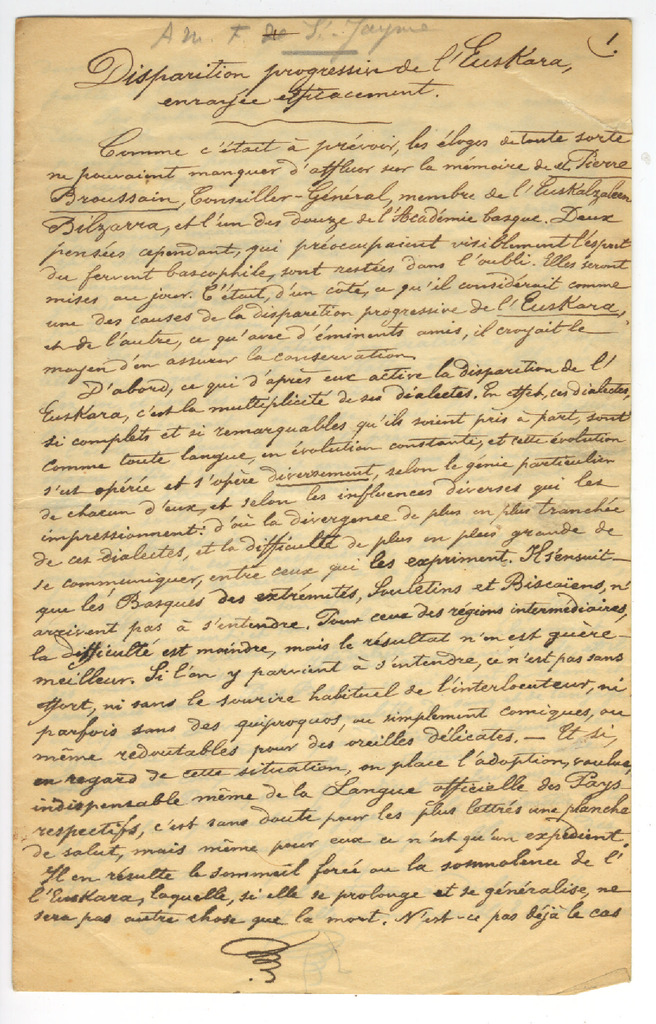 A M. F. St. Jayme
1.
Disparition progressive de l'Euskara,
enrayée efficacement.
Comme c'était à prévoir, les éloges de toute sorte
ne pouvaient manquer d'affluer sur la mémoire de Pierre
Broussain, Conseiller-Général, membre de l'Euskalzaleen
Bilzarra, et l'un des douze de l'Académie basque. Deux
pensées cependant, qui préoccupaient visiblement l'esprit
du fervent bascophile, sont restées dans l'oubli. Elles seront
mises au jour. C'était, d'un côté, ce qu'il considérait comme
une des causes de la disparition progressive de l'Euskara,
et de l'autre, ce qu'avec d'éminents amis, il croyait le
moyen d'en assurer la conservation.
D'abord, ce qui d'après eux active la disparition de l'
Euskara, c'est la multiplicité de ses dialectes. En effet, ces dialectes,
si complets et si remarquables qu'ils soient pris à part, sont
comme toute langue, en évolution constante, et cette évolution
s'est opérée et s'opère diversement, selon le génie particulier
de chacun d'eux, et selon les influences diverses qui les
impressionnent: d'où la divergence de plus en plus tranchée
de ces dialectes, et la difficulté de plus en plus grande de
se communiquer, entre ceux qui les expriment. Il s'ensuit
que les Basques des extrémités, Souletins et Biscaïens, n'
arrivent pas à s'entendre. Pour ceux des régions intermédiaires,
la difficulté est moindre, mais le résultat n'en est guère
meilleur. Si l'on y parvient à s'entendre, ce n'est pas sans
effort, ni sans le sourire habituel de l'interlocuteur, ni
parfois sans des quiproquos, ou simplement comiques, ou
même redoutables pour des oreilles délicates. — Et si,
en regard de cette situation, on place l'adoption, voulue,
indispensable même de la Langue officielle des Pays
respectifs, c'est sans doute pour les plus lettrés une planche
de salut, mais même pour eux ce n'est qu'un expédient.
Il en résulte le sommeil forcé ou la somnolence de l'
l'Euskara, laquelle, si elle se prolonge et se généralise, ne
sera pas autre chose que la mort. N'est-ce pas déjà le cas